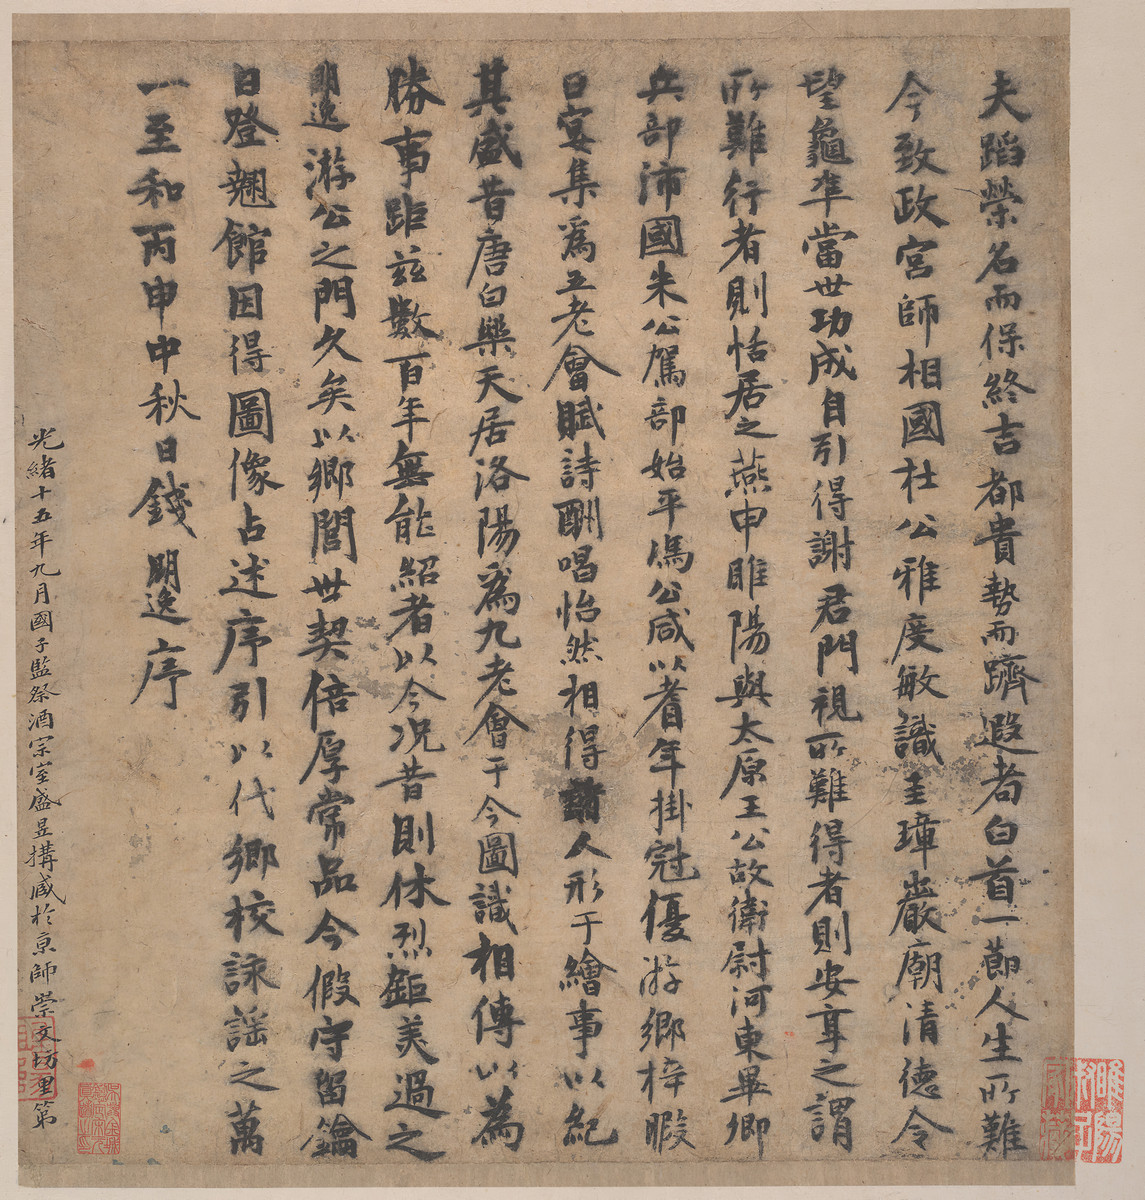 夫蹈榮名而保終吉都貴勢而躋遐者白首一節人生所難
今致政宮師相國杜公雅度敏識圭璋嚴廟清德令
望龜準當世功成自引得謝君門視所難得者則安享之謂
所難行者則恬居之燕申睢陽與太原王公故衛尉河東畢卿
兵部沛國朱公駕部始平馮公咸以耆年掛冠優游鄉梓暇
日宴集為五老會賦詩酬唱怡然相得諸人形于繪事以紀
其盛昔唐白樂天居洛陽為九老會于今圖識相傳以為
勝事距茲數百年無能紹者以今況昔則休烈鉅美過之
明逸游公之門久矣以鄉閭世契倍厚常品今假守留鑰
日登翹館因得圖像占述序引以代鄉校詠謠之萬
一至和丙申中秋日錢明逸序
光緒十五年九月國子監祭酒宗室盛昱搆藏於京師崇文坊里第